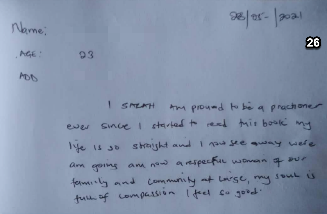 28/05-/2021
Name:
26
AGE: 23
ADD
I SARAH Am proud to be a practioner
ever since I started to read this book my
life is so straight and I now see away were
am going am now a respectful woman of our
family and community at large, my soul is
full of compassion I feel so good.